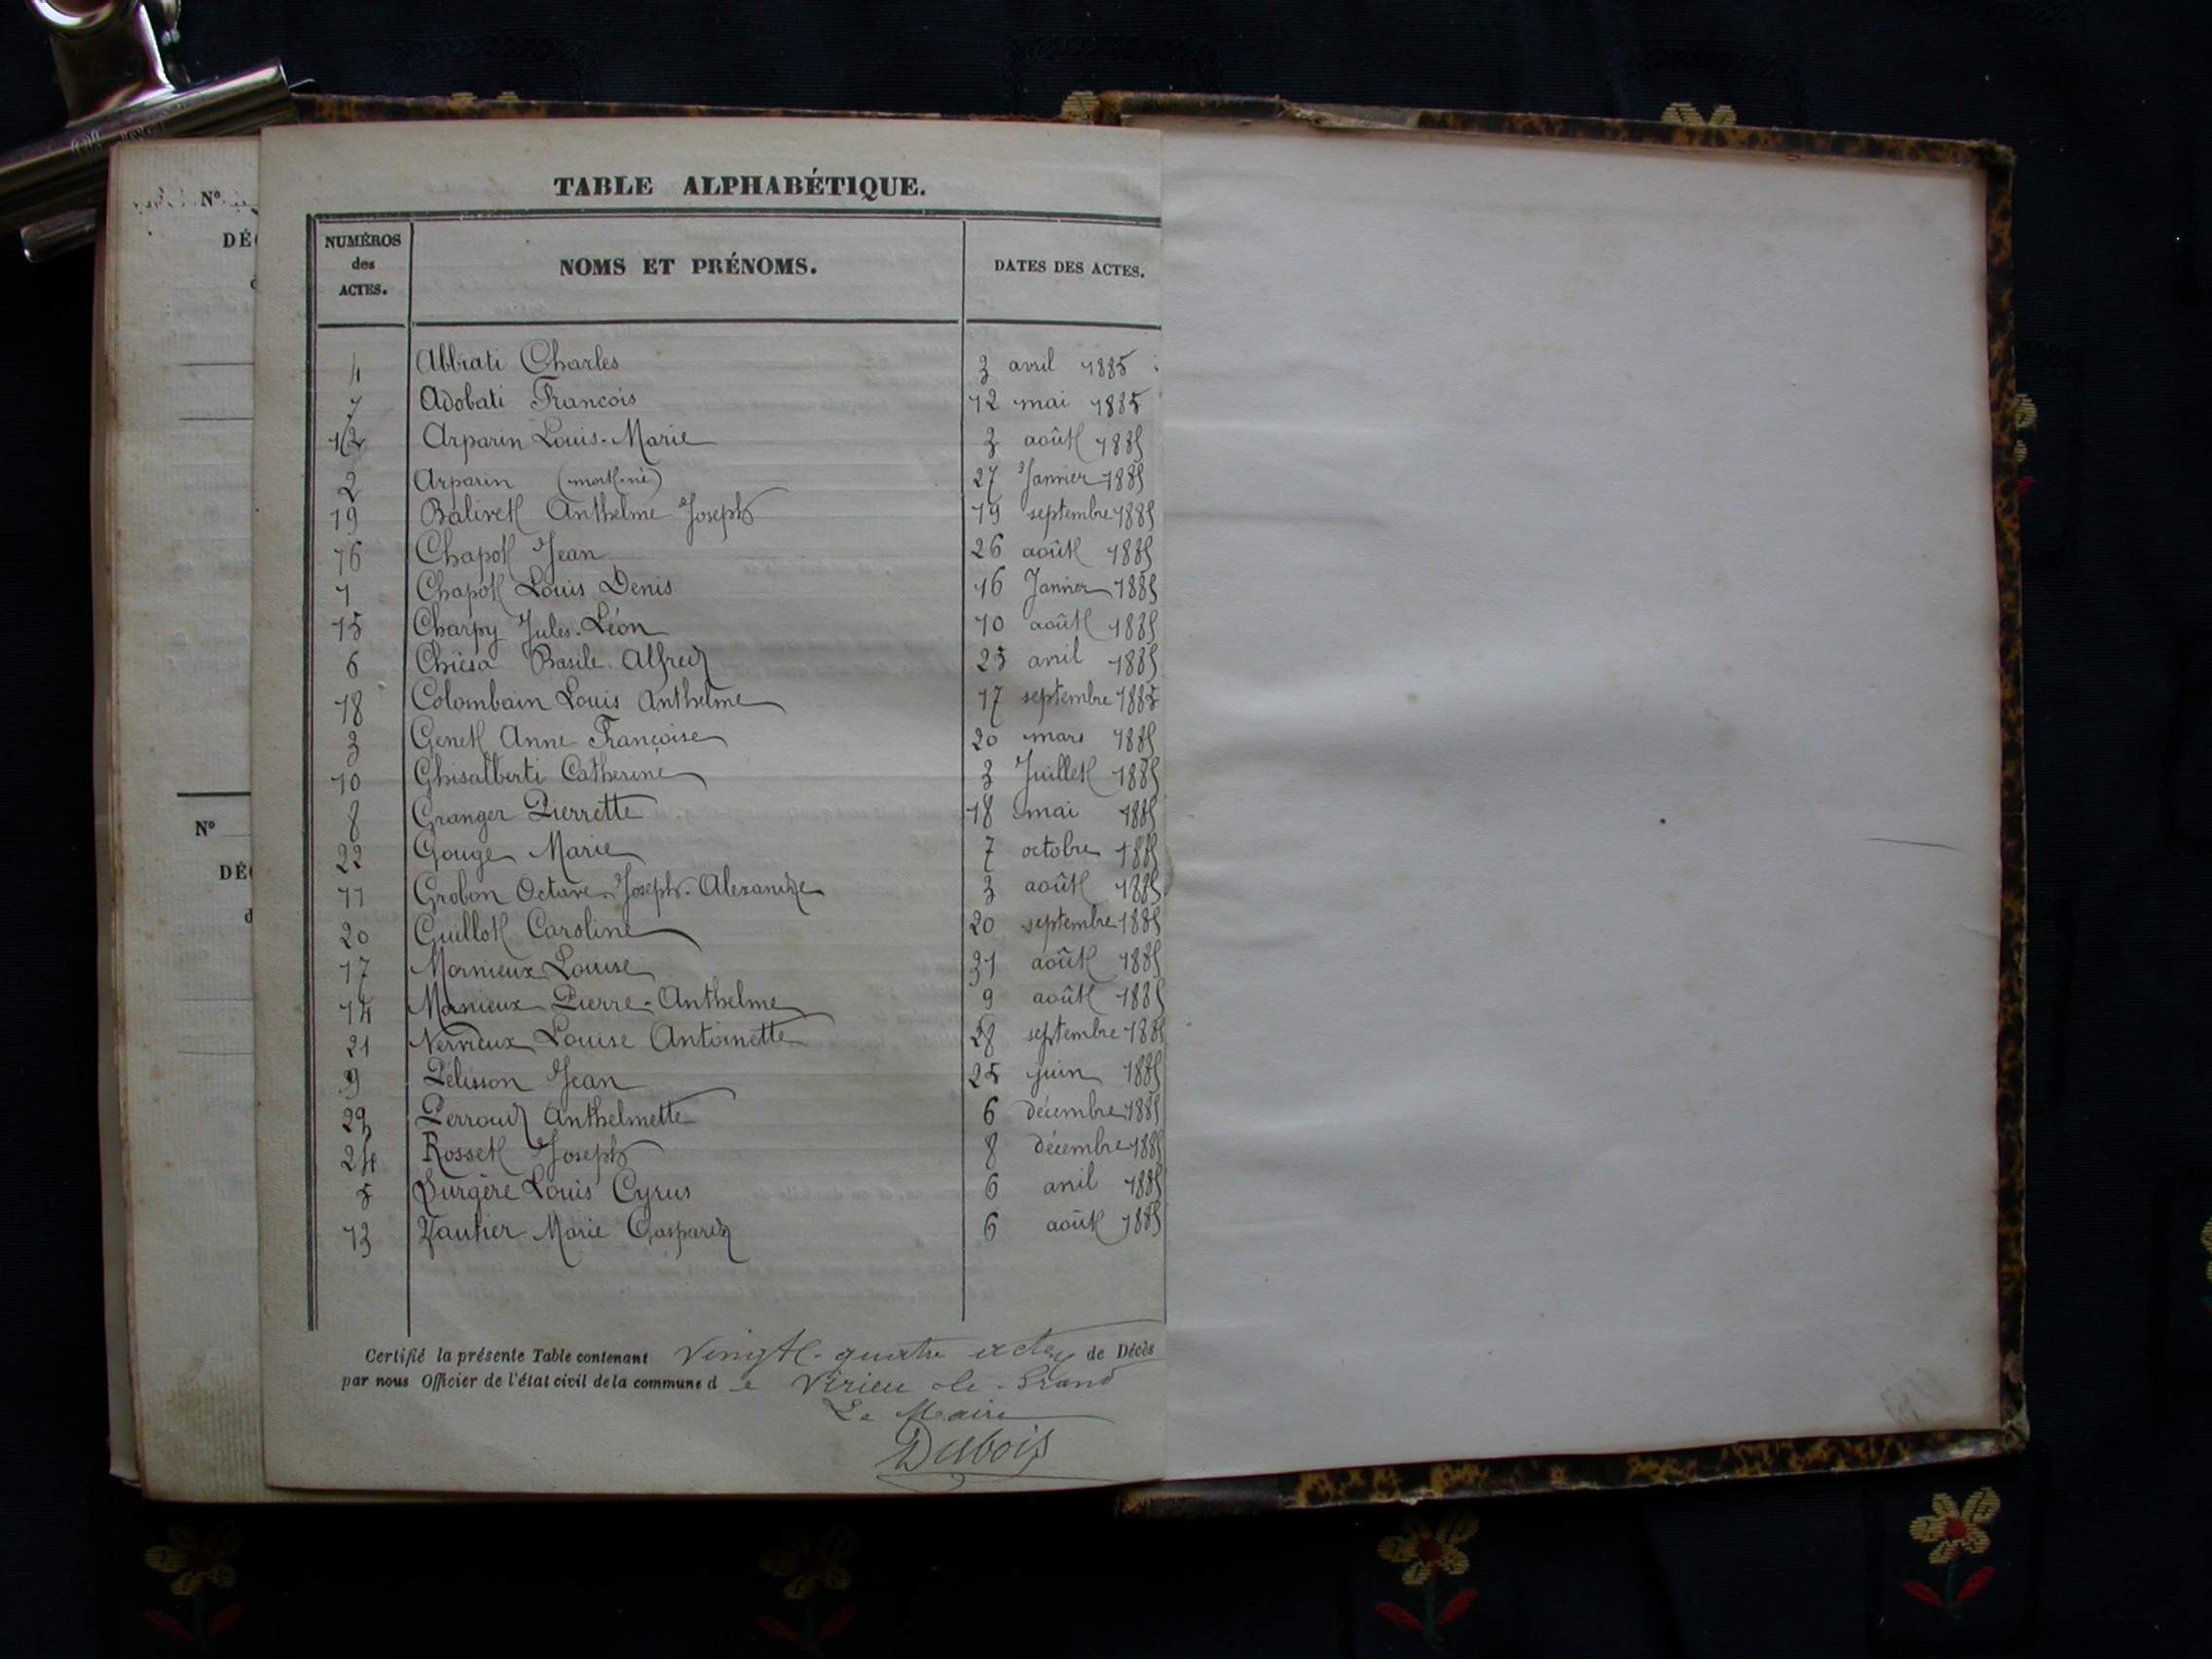 TABLE ALPHABÉTIQUE.
NUMÉROS des ACTES. NOMS ET PRÉNOMS. DATES DES ACTES.
4 Abbiati Charles 3 avril 1885
7 Adobati Francois 12 mai 1885
12 Arparin Louis-Marie 3 août 1885
2 Arparin (mort-né) 27 Janvier 1885
19 Balivet Anthelme Joseph 19 septembre 1885
16 Chapot Jean 26 août 1885
1 Chapot Louis Denis 16 Janvier 1885
15 Charpy Jules-Léon 10 août 1885
6 Chiesa Basile Alfred 25 avril 1885
18 Colombain Louis Anthelme 17 septembre 1885
3 Genet Anne Françoise 20 mars 1885
10 Ghisalberti Catherine 3 Juillet 1885
8 Granger Pierrette 18 mai 1885
22 Gouge Marie 7 octobre 1885
11 Grobon Octave Joseph-Alexandre 3 août 1885
20 Guillot Caroline 20 septembre 1885
17 Mornieux Louise 31 août 1885
14 Mornieux Pierre-Anthelme 9 août 1885
21 Nervieux Louise Antoinette 28 septembre 1885
9 Pélisson Jean 25 juin 1885
23 Perroud Anthelmette 6 décembre 1885
24 Rosset Joseph 8 décembre 1885
5 Surgère Louis Cyrus 6 avril 1885
13 Vautier Marie Gaspard 6 août 1885
Certifié la présente Table contenant Vingt-quatre actes de Décès
par nous Officier de l'état civil de la commune de Virieu-le-Grand
Le Maire
Dubois
N°
DÉC
N°
DÉC